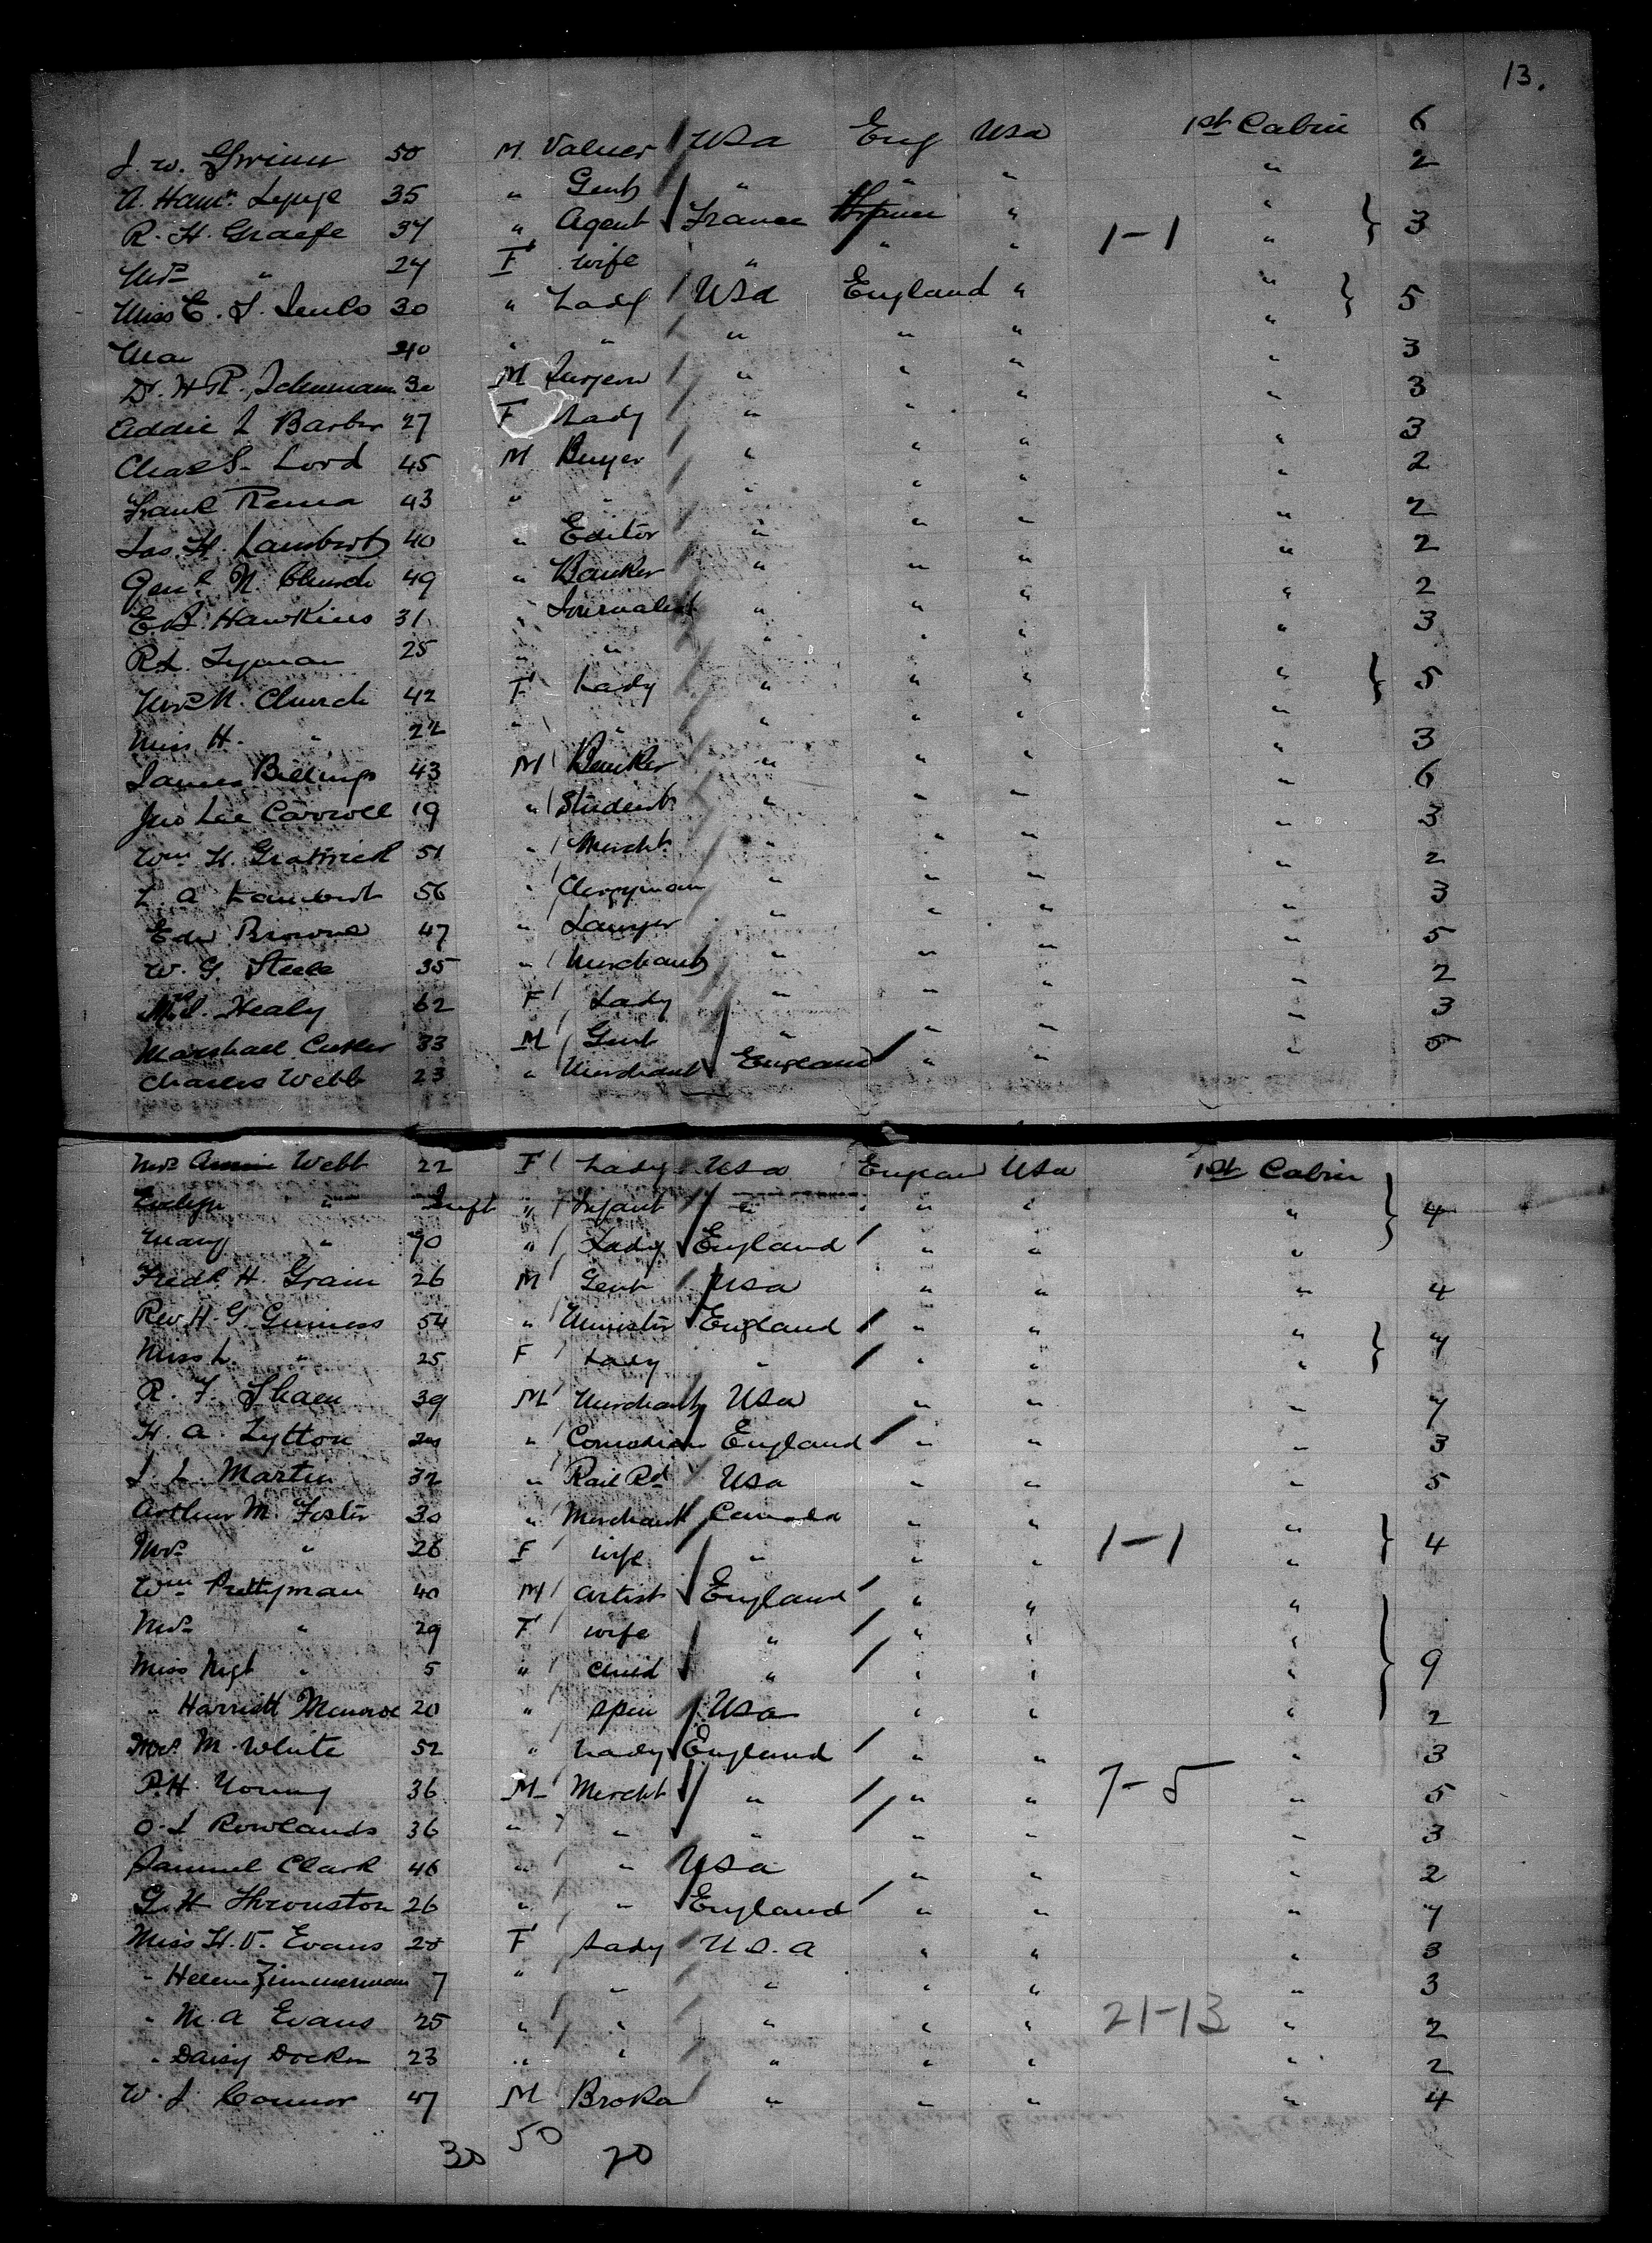 13.
J. W. 50 M Valuer USa Eng Usa 1st Cabin 6
A. Ham. 35 " Gent " " " " 2
R. H. Graefe 37 " Agent France " "
Mrs " 24 F wife " " " 1-1 " } 3
Miss E. S. Jenks 30 " Lady USa England " "
40 " " " " " " } 5
Dr. H. R. 30 M Surgeon " " " " 3
Addie L Barber 27 F Lady " " " " 3
Chas S. Lord 45 M Buyer " " " " 3
Frank Rema 43 " " " " " " 2
Jas. H. Lambert 40 " Editor " " " " 2
Genl N. Church 49 " Banker " " " " 2
E. B. Hawkins 31 " Journalist " " " " 2
R. L. Lyman 25 " " " " " " 3
Mrs N. Church 42 F Lady " " " "
Miss H. " 22 " " " " " " } 5
James Billings 43 M Banker " " " " 3
Jno Lee Carroll 19 " Student " " " " 6
Wm H. Gratwick 51 " Mercht " " " " 3
L A Lambert 56 " Clergyman " " " " 2
Edw Browne 47 " Lawyer " " " " 3
W. G. Steele 35 " Merchant " " " " 5
Healy 62 F Lady " " " " 2
Marshall Cutler 33 M Gent " " " " 3
Charles Webb 23 " Merchant England " " " 5
Mrs Annie Webb 22 F Lady Usa England Usa 1st Cabin
Evelyn " Inft " Infant " " " " } 4
Mary " 70 " Lady England " " "
Fredk. H. Grain 26 M Gent Usa " " " 4
Rev H. G. Guiness 54 " Minister England " " "
Miss L. " 25 F Lady " " " " } 7
R. F. Shaen 39 M Merchant Usa " " " 7
H. A. Lytton " Comedian England " " " 3
J. L. Martin 32 " Rail Rd Usa " " " 5
Arthur M. Foster 30 " Merchant Canada " " "
Mrs " 26 F wife " " " 1-1 " } 4
Wm Prettyman 40 M artist England " " "
Mrs " 29 F wife " " " "
Miss Mgt " 5 " child " " " " } 9
" Harriett Monroe 20 " Spin Usa " " " 2
Mrs M. White 52 " Lady England " " " 3
P. H. Young 36 M Mercht " " " 7-5 " 5
O. L Rowlands 36 " " " " " " 3
Samuel Clark 46 " " Usa " " " 2
G. H Throuston 26 " " England " " " 7
Miss H. V. Evans 20 F Lady U.S.A " " " 3
" Helene Zimmerman 7 " " " " " " 3
" M. A Evans 25 " " " " " 21-13 " 2
" Daisy Docken 23 " " " " " " 2
W. J. Connor 47 M Broker " " " " 4
30 50 20